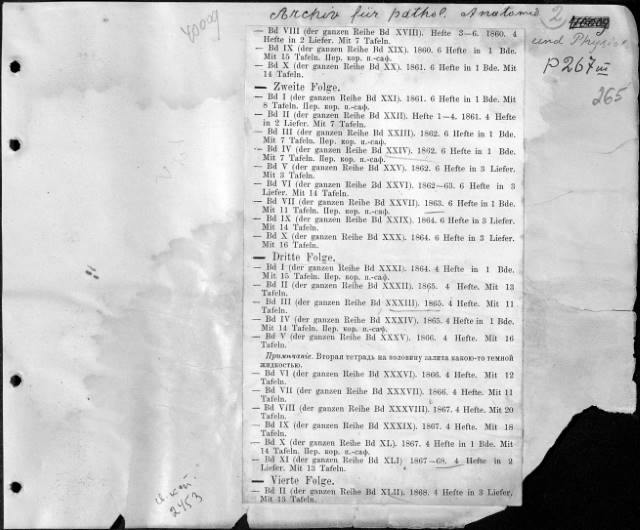 Archiv für pathol. Anatomie 2
und Physio
P 267 III
265
— Bd VIII (der ganzen Reihe Bd XVIII). Hefte 3—6. 1860. 4
Hefte in 2 Liefer. Mit 7 Tafeln.
— Bd IX (der ganzen Reihe Bd XIX). 1860. 6 Hefte in 1 Bde.
Mit 15 Tafeln. Пер. кор. п.-саф.
— Bd X (der ganzen Reihe Bd XX). 1861. 6 Hefte in 1 Bde. Mit
14 Tafeln.
— Zweite Folge.
— Bd I (der ganzen Reihe Bd XXI). 1861. 6 Hefte in 1 Bde. Mit
8 Tafeln. Пер. кор. п.-саф.
— Bd II (der ganzen Reihe Bd XXII). Hefte 1—4. 1861. 4 Hefte
in 2 Liefer. Mit 7 Tafeln.
— Bd III (der ganzen Reihe Bd XXIII). 1862. 6 Hefte in 1 Bde.
Mit 7 Tafeln. Пер. кор. п.-саф.
— Bd IV (der ganzen Reihe Bd XXIV). 1862. 6 Hefte in 1 Bde.
Mit 7 Tafeln. Пер. кор. п.-саф.
— Bd V (der ganzen Reihe Bd XXV). 1862. 6 Hefte in 3 Liefer.
Mit 3 Tafeln.
— Bd VI (der ganzen Reihe Bd XXVI). 1862—63. 6 Hefte in 3
Liefer. Mit 14 Tafeln.
— Bd VII (der ganzen Reihe Bd XXVII). 1863. 6 Hefte in 1 Bde.
Mit 11 Tafeln. Пер. кор. п.-саф.
— Bd IX (der ganzen Reihe Bd XXIX). 1864. 6 Hefte in 3 Liefer.
Mit 14 Tafeln.
— Bd X (der ganzen Reihe Bd XXX). 1864. 6 Hefte in 3 Liefer.
Mit 16 Tafeln.
— Dritte Folge.
— Bd I (der ganzen Reihe Bd XXXI). 1864. 4 Hefte in 1 Bde.
Mit 15 Tafeln. Пер. кор. п.-саф.
— Bd II (der ganzen Reihe Bd XXXII). 1865. 4 Hefte. Mit 13
Tafeln.
— Bd III (der ganzen Reihe Bd XXXIII). 1865. 4 Hefte. Mit 11
Tafeln.
— Bd IV (der ganzen Reihe Bd XXXIV). 1865. 4 Hefte in 1 Bde.
Mit 14 Tafeln. Пер. кор. п.-саф.
— Bd V (der ganzen Reihe Bd XXXV). 1866. 4 Hefte. Mit 16
Tafeln.
Примѣчаніе. Вторая тетрадь на половину залита какою-то темной
жидкостью.
— Bd VI (der ganzen Reihe Bd XXXVI). 1866. 4 Hefte. Mit 12
Tafeln.
— Bd VII (der ganzen Reihe Bd XXXVII). 1866. 4 Hefte. Mit 11
Tafeln.
— Bd VIII (der ganzen Reihe Bd XXXVIII). 1867. 4 Hefte. Mit 20
Tafeln.
— Bd IX (der ganzen Reihe Bd XXXIX). 1867. 4 Hefte. Mit 18
Tafeln.
— Bd X (der ganzen Reihe Bd XL). 1867. 4 Hefte in 1 Bde. Mit
14 Tafeln. Пер. кор. п.-саф.
— Bd XI (der ganzen Reihe Bd XLI) 1867—68. 4 Hefte in 2
Liefer. Mit 13 Tafeln.
— Vierte Folge.
— Bd II (der ganzen Reihe Bd XLII). 1868. 4 Hefte in 3 Liefer.
Mit 13 Tafeln.
2453